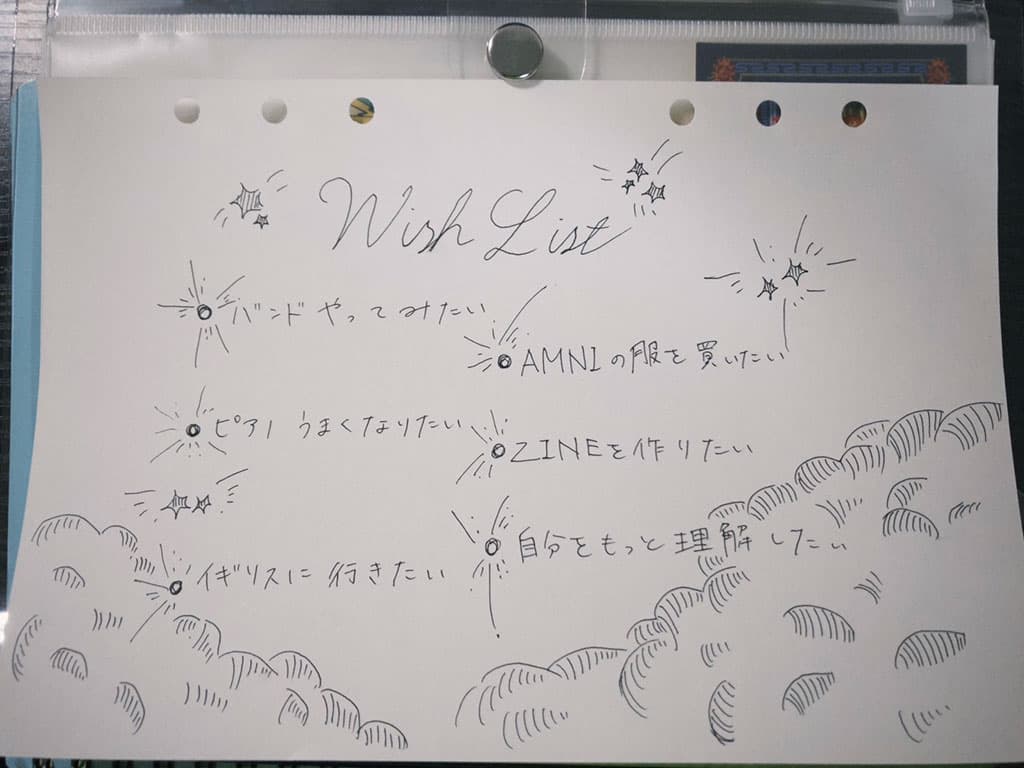 Wish List
バンドやってみたい
AMNIの服を買いたい
ピアノうまくなりたい
ZINEを作りたい
イギリスに行きたい
自分をもっと理解したい